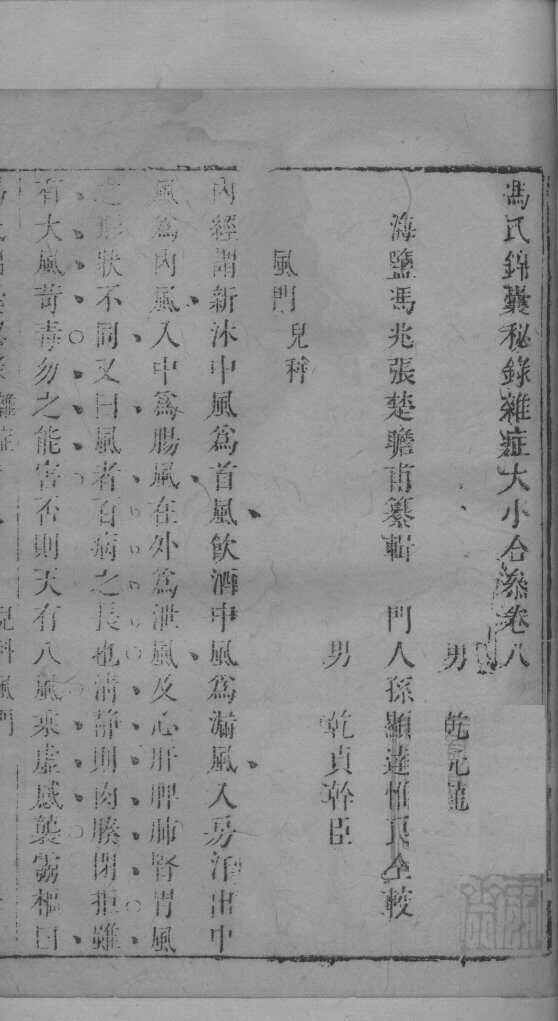 馮氏錦囊秘錄雜症大小合叅卷八
男　乾元龍
海鹽馮兆張楚瞻甫纂輯　門人孫顯達惟良仝較
男　乾貞幹臣
風門兒科
內經謂新沐中風爲首風飲酒中風爲漏風入房汗出中
風爲內風入中爲腸風在外爲泄風及心肝脾肺腎胃風
之形狀不同又曰風者百病之長也清靜則肉腠閉拒雖
有大風苛毒勿之能害否則天有八風乘虛感襲靈樞曰
兒科風門